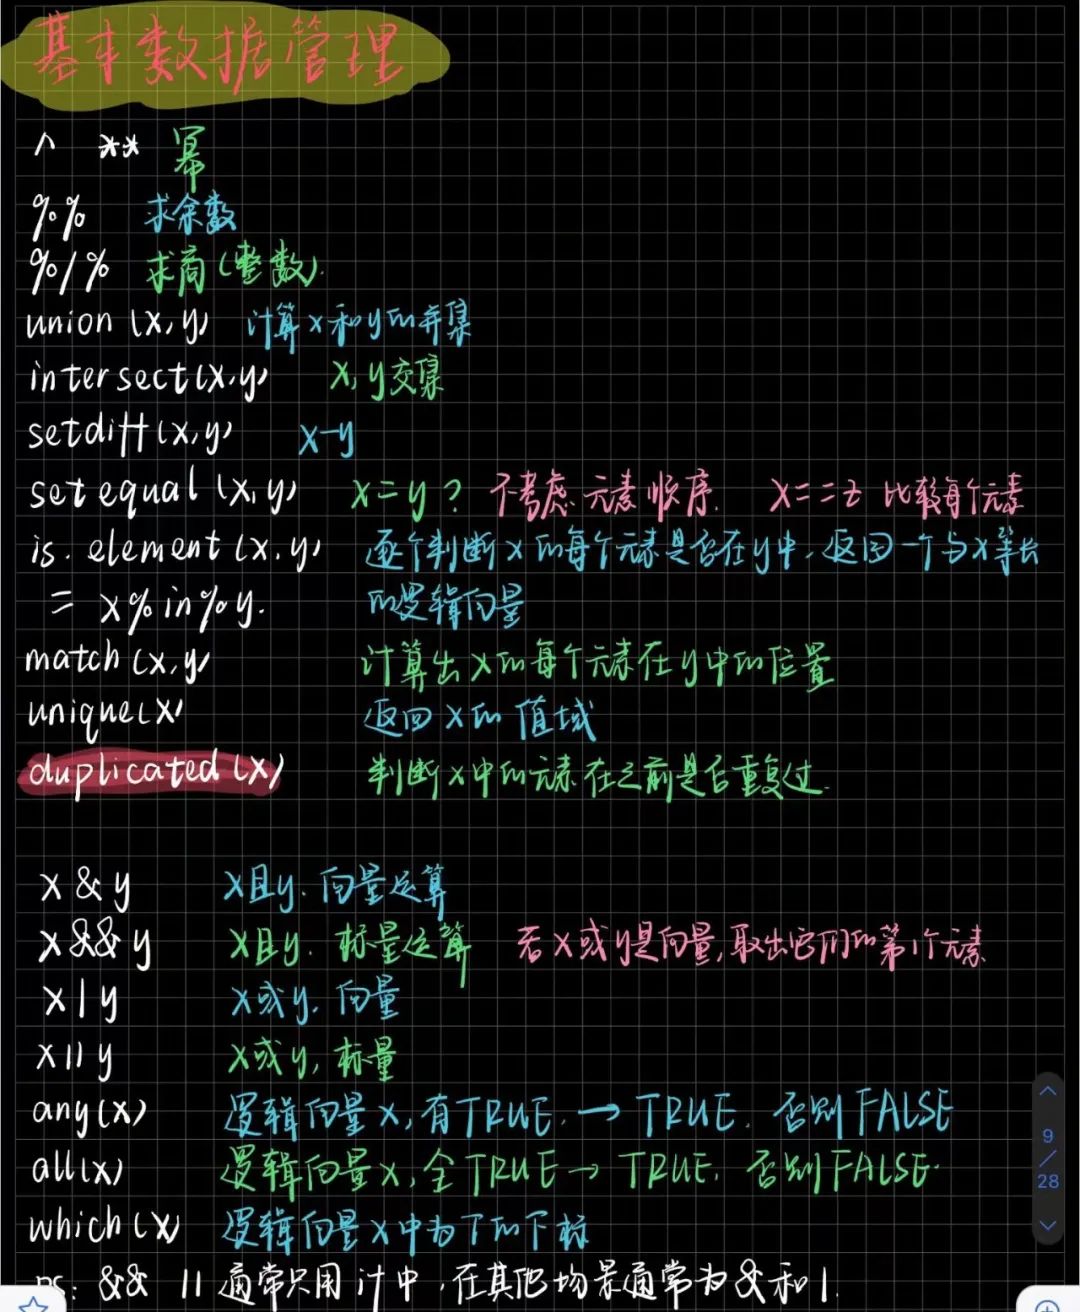 基本数据管理
^ ** 幂
%% 求余数
%/% 求商(整数).
union(x,y) 计算x和y的并集
intersect(x,y) x,y交集
setdiff(x,y) x-y
setequal(x,y) x=y? 不考虑元素顺序. x==z 比较每个元素
is.element(x,y) 逐个判断x的每个元素是否在y中.返回一个与x等长
= x%in%y. 的逻辑向量
match(x,y) 计算出x的每个元素在y中的位置
unique(x) 返回x的值域
duplicated(x) 判断x中的元素在之前是否重复过.
x & y x且y.向量运算
x && y x且y.标量运算 若x或y是向量,取出它们的第1个元素
x | y x或y.向量
x || y x或y,标量
any(x) 逻辑向量x,有TRUE.→TRUE.否则FALSE
all(x) 逻辑向量x,全TRUE→TRUE.否则FALSE.
which(x) 逻辑向量x中为T的下标
ps: && || 通常只用if中,在其他场景通常为&和|.
9
/
28